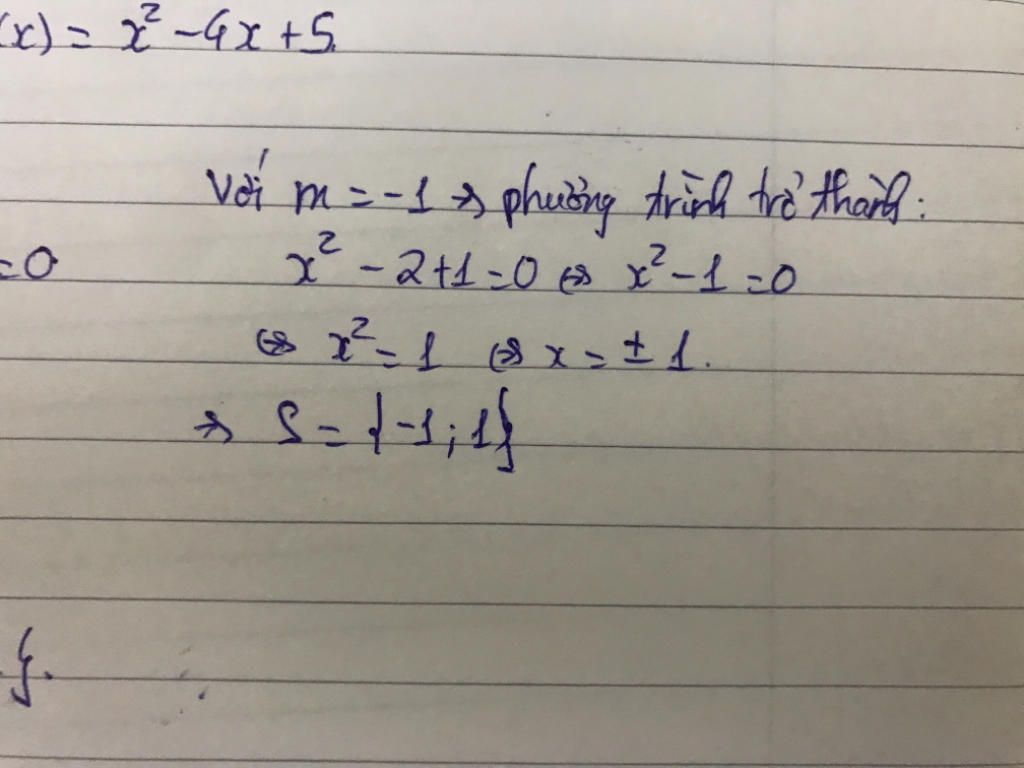 (x) = x² - 4x + 5.
Với m = -1 → phương trình trở thành:
= 0
x² - 2 + 1 = 0 ⇔ x² - 1 = 0
⇔ x² = 1 ⇔ x = ± 1.
→ S = {-1; 1}
}.